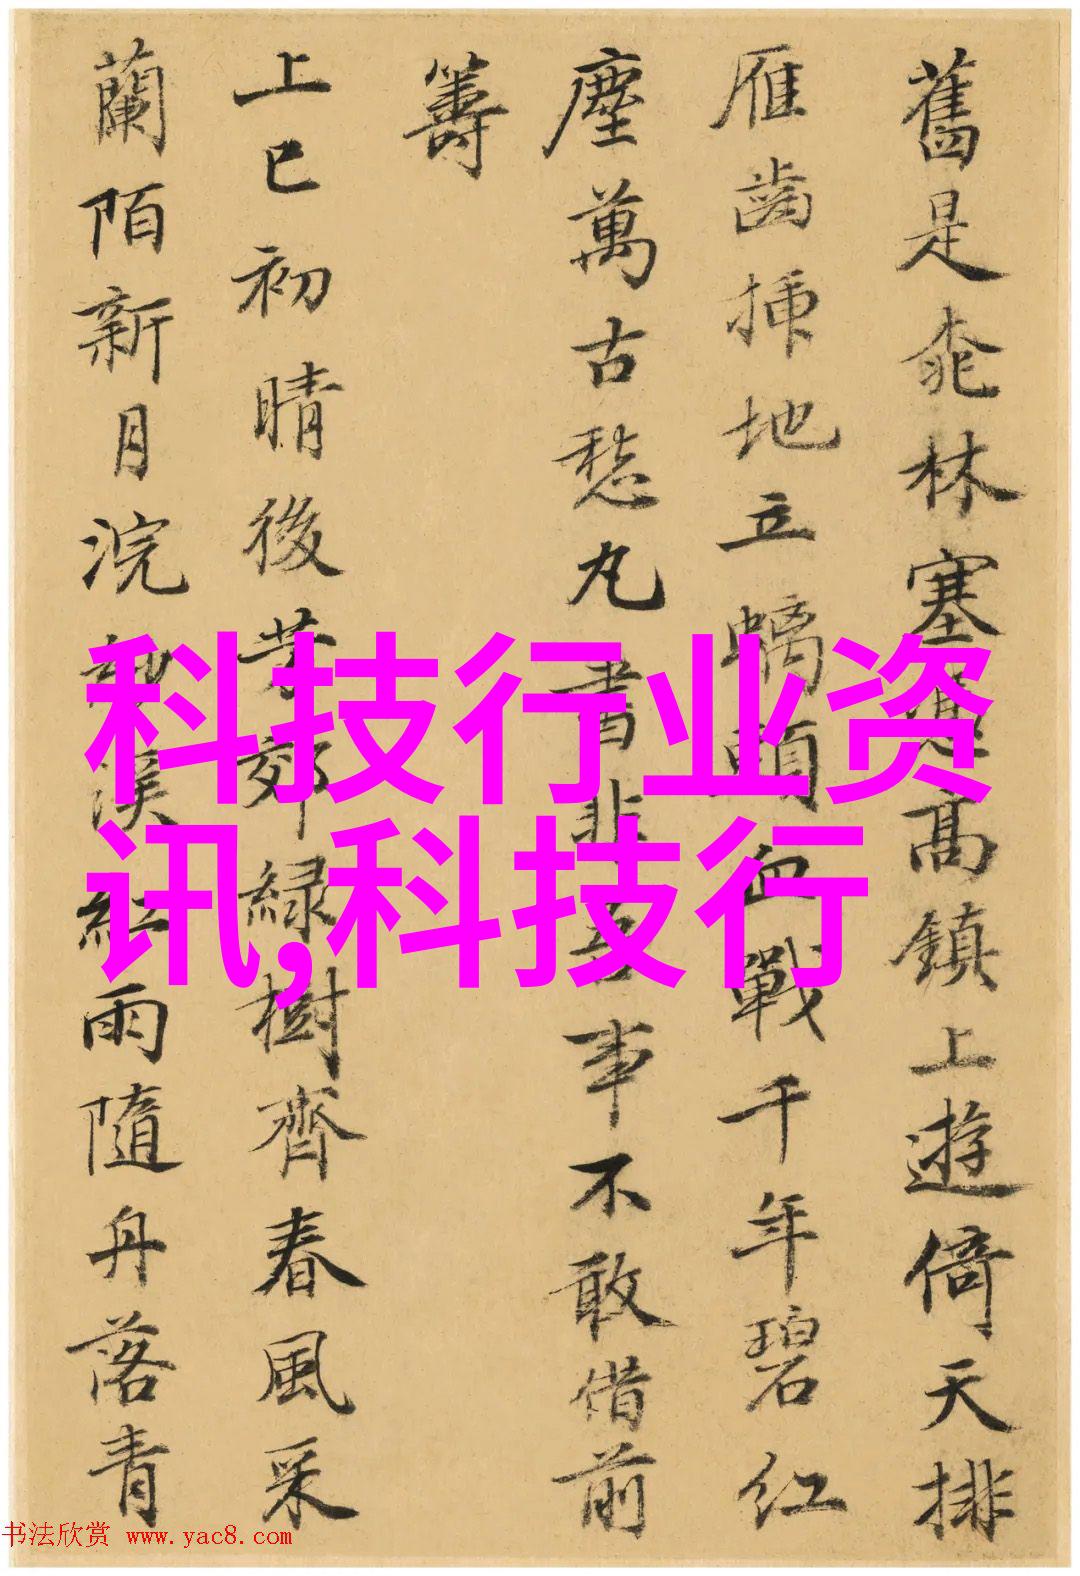 舊是桃林塞高鎮上遊倚天排
雁齒插地立螭頭血戰千年碧紅
塵萬古愁丸書非吾事不敢借前
籌
上巳初晴後芳郊緑樹齊春風采
蘭陌新月浣紗溪紅雨隨舟落青
科技行业资
讯,科技行
书法欣赏 www.yac8.com